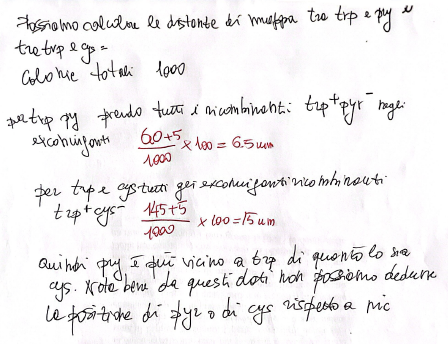 Possiamo calcolare le distanze di mappa tra trp e py e
tra trp e cys =
Colonie totali 1000
per trp py prendo tutti i ricombinanti: trp+ pyr- negli
exconiuganti 60+5/1000 x 100 = 6.5 um
per trp e cys tutti gli exconiuganti ricombinanti
trp+ cys- 145+5/1000 x 100 = 15 um
quindi py è più vicino a trp di quanto lo sia
cys. Nota bene da questi dati non possiamo dedurre
la posizione di pyr o di cys rispetto a nic